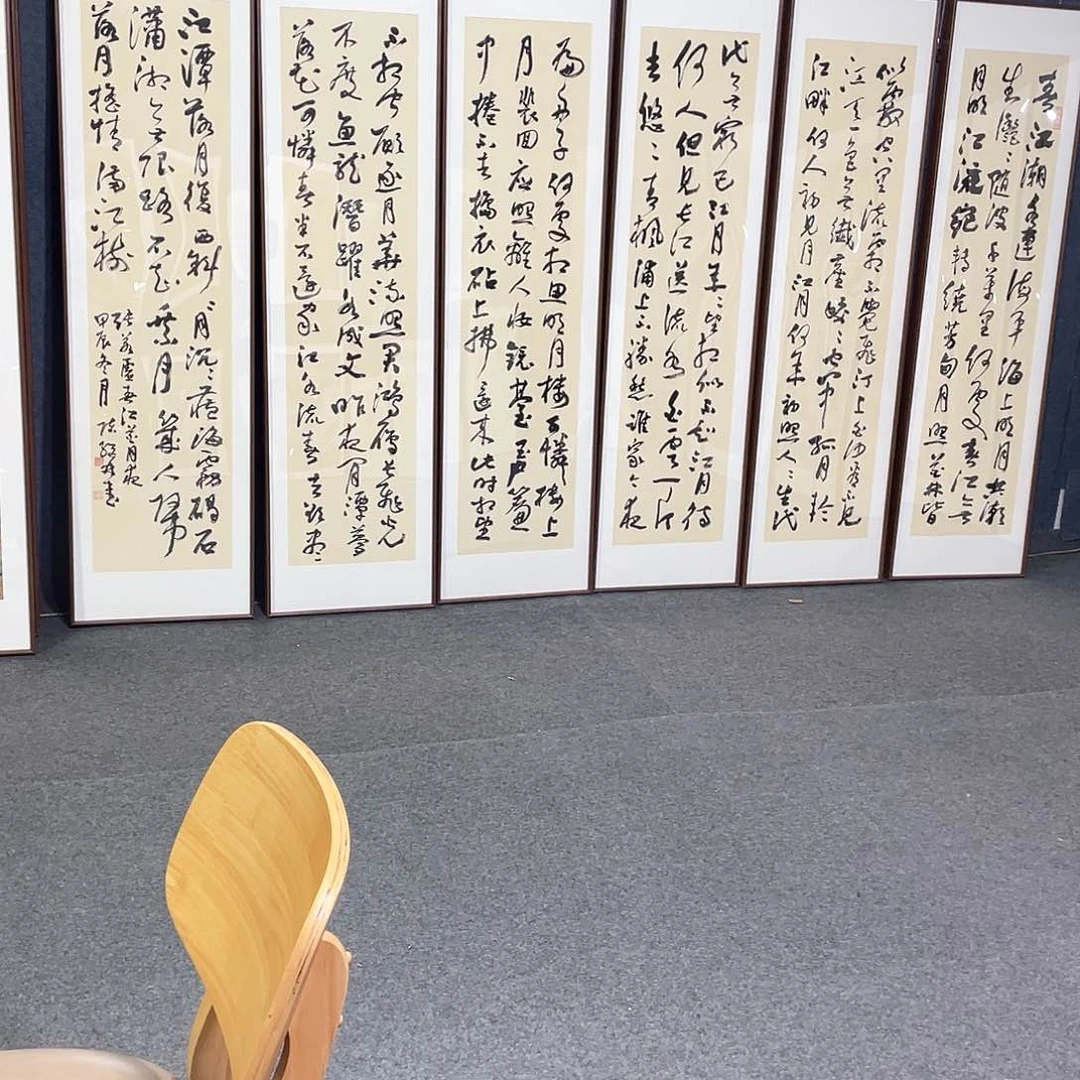 春江潮水連海平海上明月共潮
生灩〻隨波千萬里何處春江無
月明江流宛轉繞芳甸月照花林皆
似霰空里流霜不覺飛汀上白沙看不見
江天一色無纖塵皎〻空中孤月輪
江畔何人初見月江月何年初照人〻生代
代〻無窮已江月年〻望相似不知江月待
何人但見長江送流水白雲一片
去悠〻青楓浦上不勝愁誰家今夜
扁舟子何處相思明月樓可憐樓上
月裴回應照離人妝鏡臺玉戶簾
中捲不去擣衣砧上拂還來此時相望
不相聞願逐月華流照君鴻雁長飛光
不度魚龍潛躍水成文昨夜閒潭夢
落花可憐春半不還家江水流春去欲盡〻
江潭落月復西斜〻月沉〻藏海霧碣石
瀟湘無限路不知乘月幾人歸
落月搖情滿江樹
張若虛春江花月夜
甲辰冬月 書